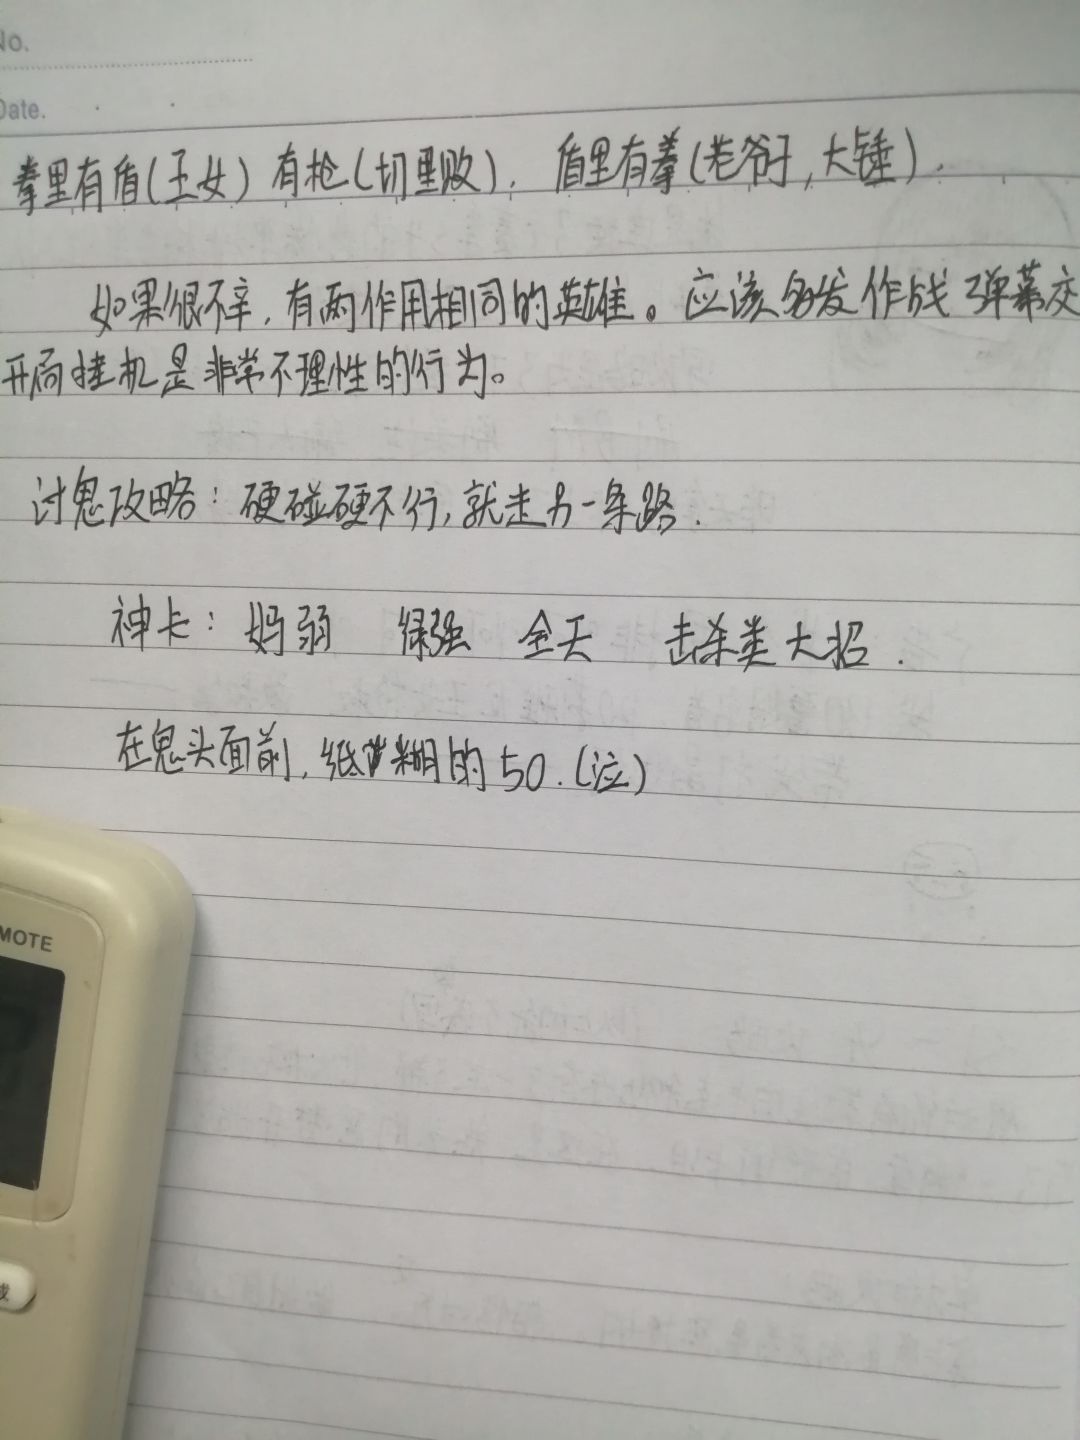 No.
Date.
拳里有盾(王女)有枪(切里败),盾里有拳(老爷子,大锤).
如果很不辛,有两作用相同的英雄。应该多发作战弹幕交
开局挂机是非常不理性的行为。
讨鬼攻略:硬碰硬不行,就走另一条路.
神卡:妈弱 绿强 全天 击杀类大招.
在鬼头面前,纸糊的50.(泣)
MOTE